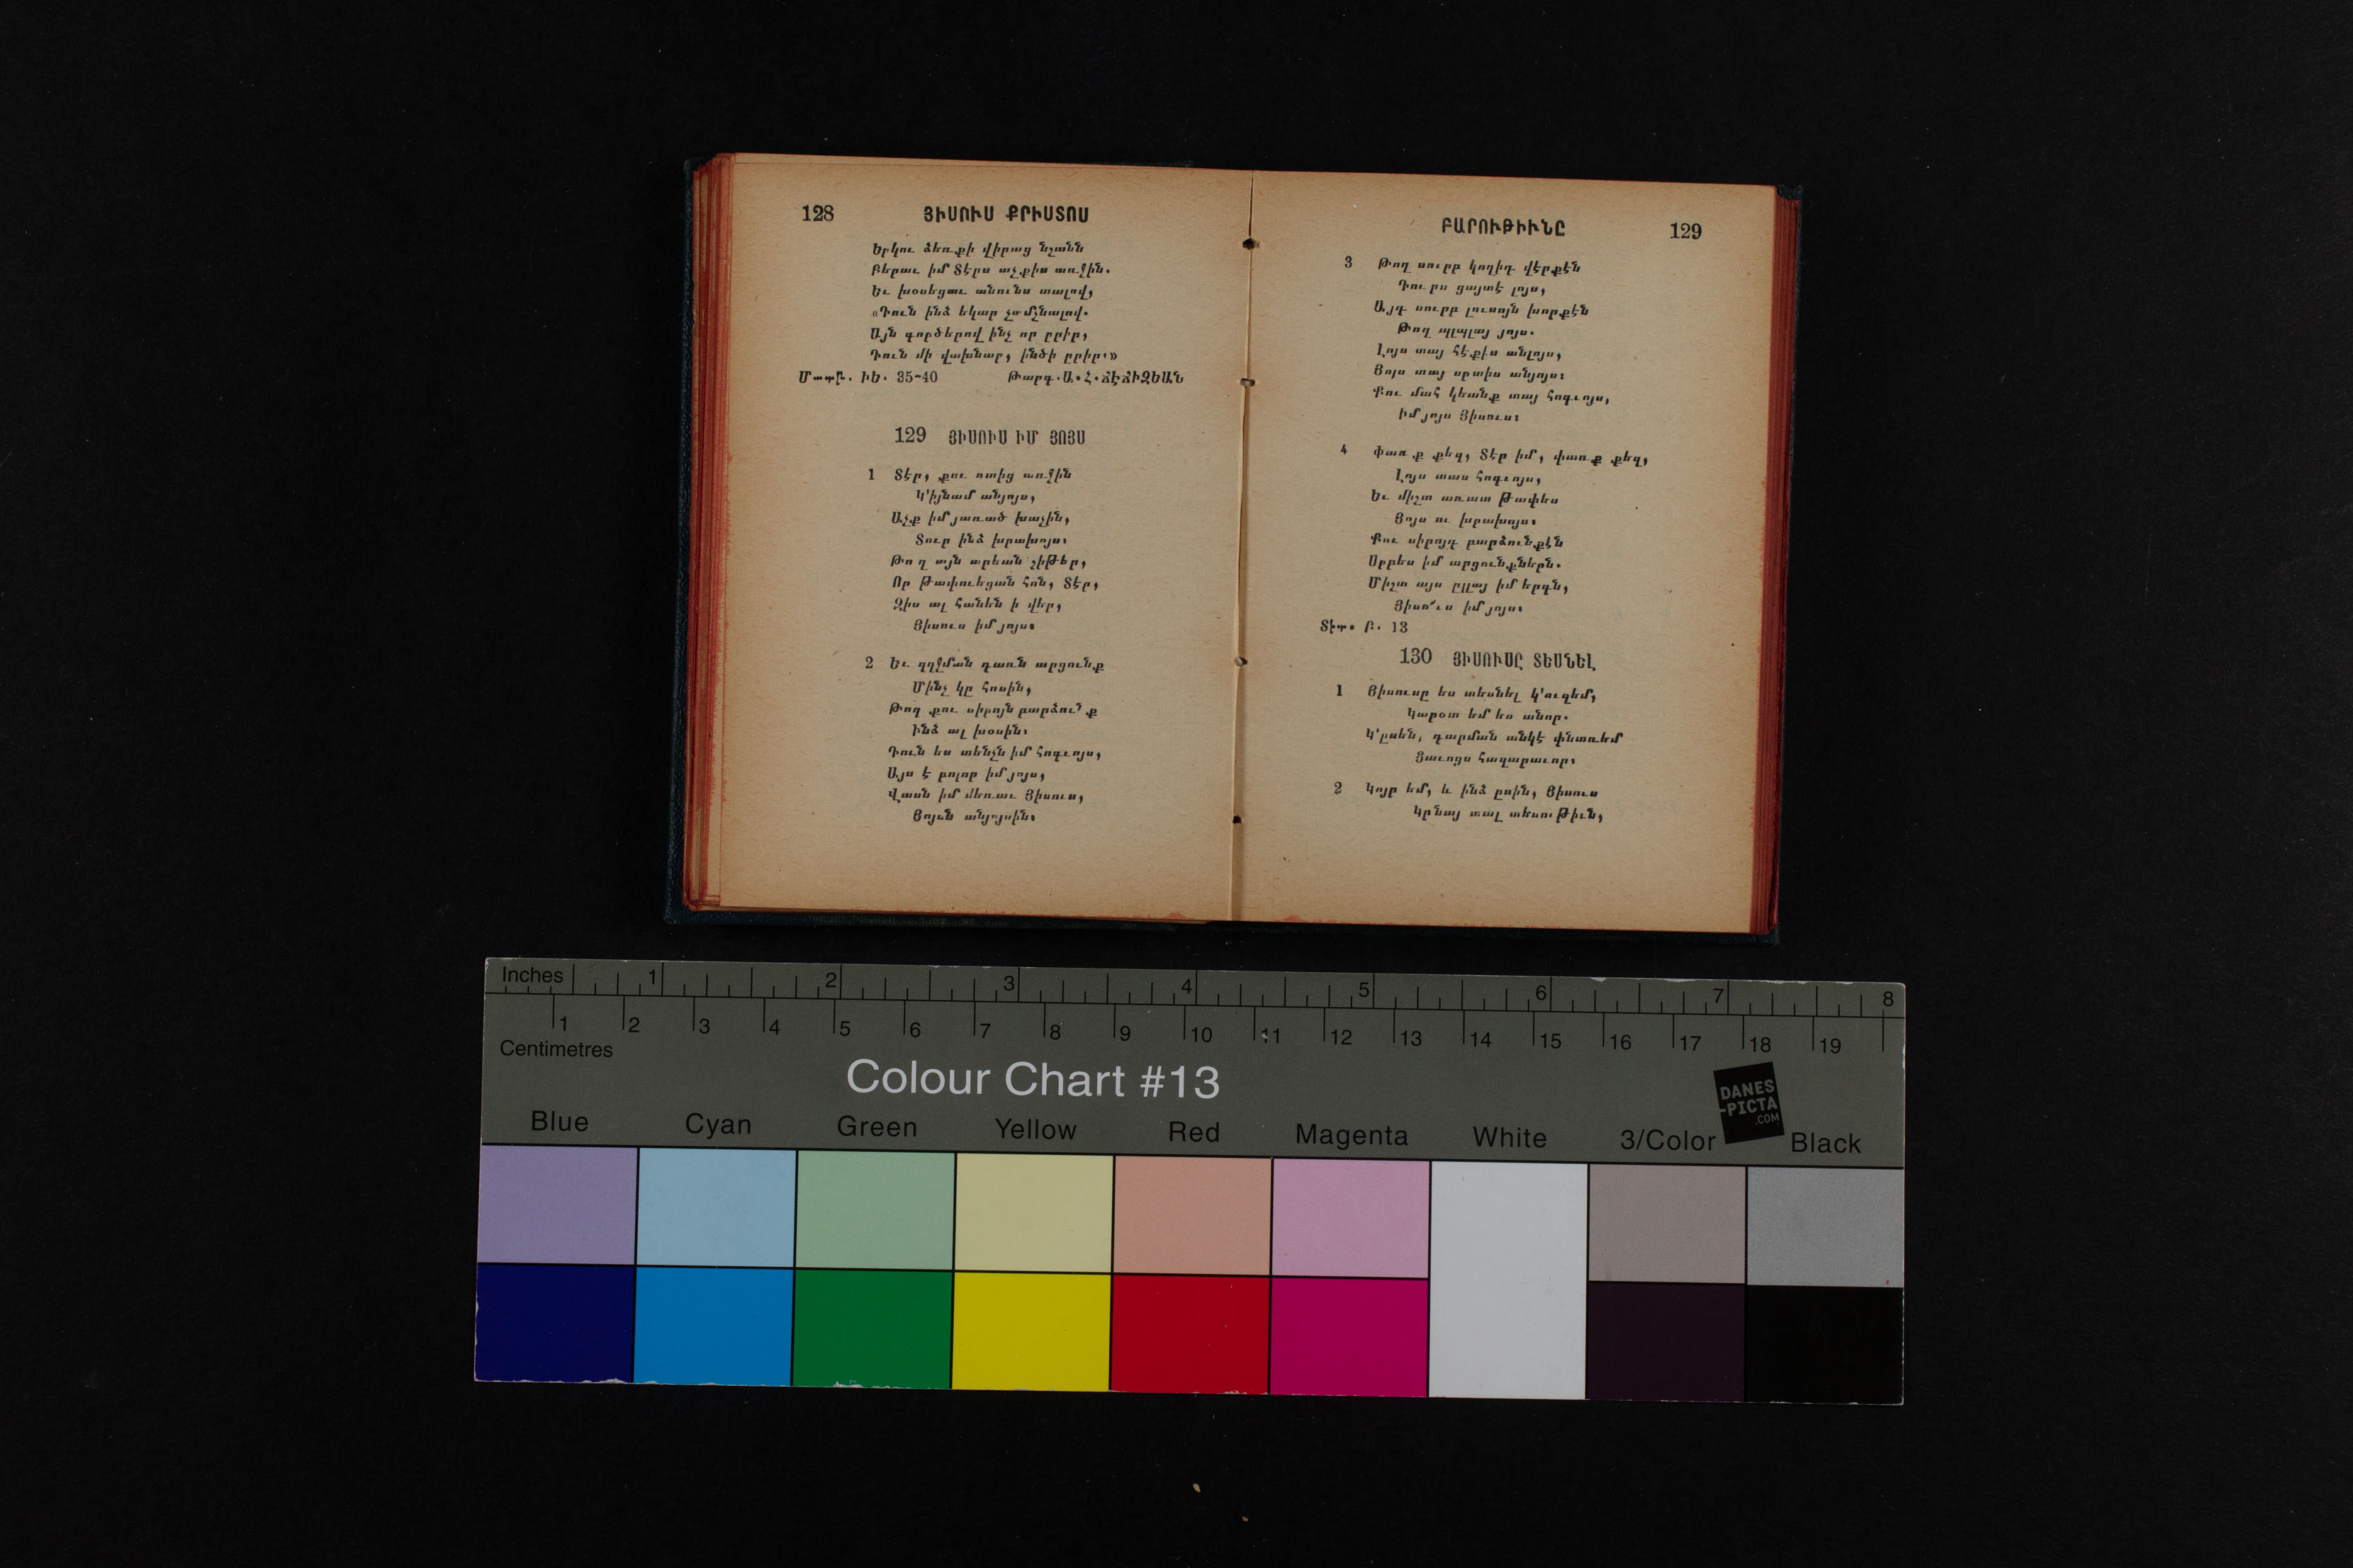 128 ՅԻՍՈՒՍ ՔՐԻՍՏՈՍ
Երկու ձեռքի վիրաց նշանն
Բերաւ իմ Տէրս աչքիս առջին.
Եւ խօսեցաւ անունս տալով,
«Դուն ինձ եկար չամչնալով.
Այն գործերով ինչ որ ըրիր,
Դուն մի վախնար, ինծի ըրիր.»
Մատթ. ԻԵ. 35-40 Թարգ. Ա. Հ. ՃԷՃԻԶԵԱՆ
129 ՅԻՍՈՒՍ ԻՄ ՅՈՅՍ
1 Տէր, քու ոտից առջին
Կ'իյնամ անյոյս,
Աչք իմ յառած խաչին,
Տուր ինձ խրախոյս։
Թող այն արեան շիթեր,
Որ թափուեցան հոն, Տէր,
Զիս ալ հանեն ի վեր,
Յիսուս իմ յոյս։
2 Եւ զղջման դառն արցունք
Մինչ կը հոսին,
Թող քու սիրոյն բարձունք
Ինձ ալ խօսին։
Դուն ես տենչն իմ հոգւոյս,
Այս է բոլոր իմ յոյս,
Վասն իմ մեռաւ Յիսուս,
Յոյսն անյոյսին։
ԲԱՐՈՒԹԻՒՆԸ 129
3 Թող սուրբ կողիդ վէրքէն
Դուրս ցայտէ լոյս,
Այդ սուրբ լուսոյն խորքէն
Թող պլպլայ յոյս.
Լոյս տայ հէքիս անլոյս,
Յոյս տայ սրտիս անյոյս։
Քու մահ կեանք տայ հոգւոյս,
Իմ յոյս Յիսուս։
4 Փառք քեզ, Տէր իմ, փառք քեզ,
Լոյս տաս հոգւոյս,
Եւ միշտ առատ թափես
Յոյս ու խրախոյս։
Քու սիրոյդ բարձունքէն
Սրբես իմ արցունքներն.
Միշտ այս ըլլայ իմ երգն,
Յիսո՜ւս իմ յոյս։
Տիտ. Բ. 13
130 ՅԻՍՈՒՍԸ ՏԵՍՆԵԼ
1 Յիսուսը ես տեսնել կ'ուզեմ,
Կարօտ եմ ես անոր.
Կ'ըսեն, դարման անկէ փնտռեմ
Ցաւոցս հազարաւոր։
2 Կոյր եմ, և ինձ ըսին, Յիսուս
Կրնայ տալ տեսութիւն,
Inches 1 2 3 4 5 6 7 8
1 2 3 4 5 6 7 8 9 10 11 12 13 14 15 16 17 18 19
Centimetres
Colour Chart #13
DANES
-PICTA
.COM
Blue Cyan Green Yellow Red Magenta White 3/Color Black